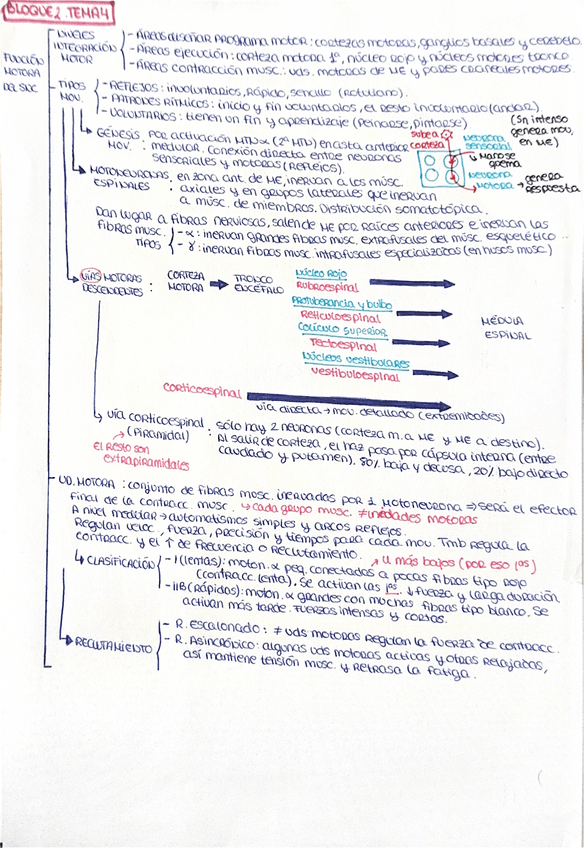 BLOQUE 2. TEMA 4
FUNCIÓN MOTORA DEL SNC
NIVELES INTEGRACIÓN MOTOR
- ÁREAS diseñar PROGRAMA motor: cortezas motoras, ganglios basales y cerebelo.
- ÁREAS ejecución: corteza motora 1ª, núcleo rojo y núcleos motores tronco
- ÁREAS CONTRACCIÓN MUSC.: uds. motoras de ME y PARES CRANEALES motores.
TIPOS MOV.
- REFLEJOS: involuntarios, Rápido, sencillo (Rotuliano).
- PATRONES RÍTMICOS: inicio y fin voluntarios, el resto involuntario (andar).
- VOLUNTARIOS: tienen un fin y aprendizaje (Peinarse, Pintarse)
(Sn intenso genera mov. en ME)
GÉNESIS MOV.: POR activación MTNα (2ª MTN) en asta anterior medular. Conexión directa entre neuronas sensoriales y motoras (REFLEJOS).
sube a corteza
NEURONA sensorial
Mano se quema
NEURONA MOTORA → genera respuesta
MOTONEURONAS ESPINALES: en zona ant. de ME, inervan a los músc. axiales y en grupos laterales que inervan a músc. de miembros. Distribución somatotópica.
Dan lugar a fibras nerviosas, salen de ME por raíces anteriores e inervan las fibras musc.
TIPOS
- α: inervan grandes fibras musc. extrafusales del músc. esquelético...
- γ: inervan fibras musc. intrafusales especializadas (en husos musc)
VÍAS MOTORAS DESCENDENTES:
CORTEZA MOTORA → TRONCO ENCÉFALO
Núcleo Rojo
Rubroespinal
Protuberancia y bulbo
Reticuloespinal
Colículo superior
Tectoespinal
Núcleos vestibulares
Vestibuloespinal
MÉDULA ESPINAL
Corticoespinal
vía directa → mov. detallado (extremidades)
vía corticoespinal (Piramidal): sólo hay 2 neuronas (corteza m. a ME y ME a destino).
Al salir de corteza, el haz pasa por cápsula interna (entre caudado y putamen). 80% baja y decusa, 20% bajo directo
El Resto son extrapiramidales
- UD. MOTORA: conjunto de fibras musc. inervadas por 1 motoneurona ⇒ será el efector
final de la contracc. musc. → cada grupo musc. ≠ unidades motoras
A nivel medular → automatismos simples y arcos reflejos.
Regulan veloc., fuerza, precisión y tiempos para cada mov. Tmb regula la
contracc. y el ↑ de frecuencia o reclutamiento.
U más bajos (por eso 1ºs)
CLASIFICACIÓN
- I (lentas): moton. α peq. conectados a pocas fibras tipo rojo
(contracc. lenta), se activan las 1ºs. ↓ fuerza y larga duración
- IIB (Rápidas): moton. α grandes con muchas fibras tipo blanco, se
activan más tarde. fuerzas intensas y cortas.
RECLUTAMIENTO
- R. Escalonado: ≠ uds motoras regulan la fuerza de contracc.
- R. Asincrónico: algunas uds motoras activas y otras relajadas,
así mantiene tensión musc. y retrasa la fatiga.